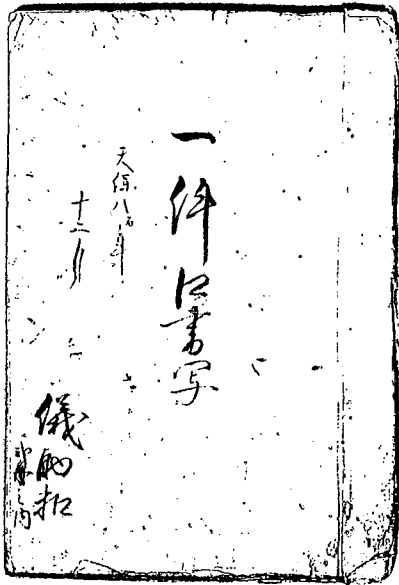 一件口書写
天保八酉年
十二月
儀助扣